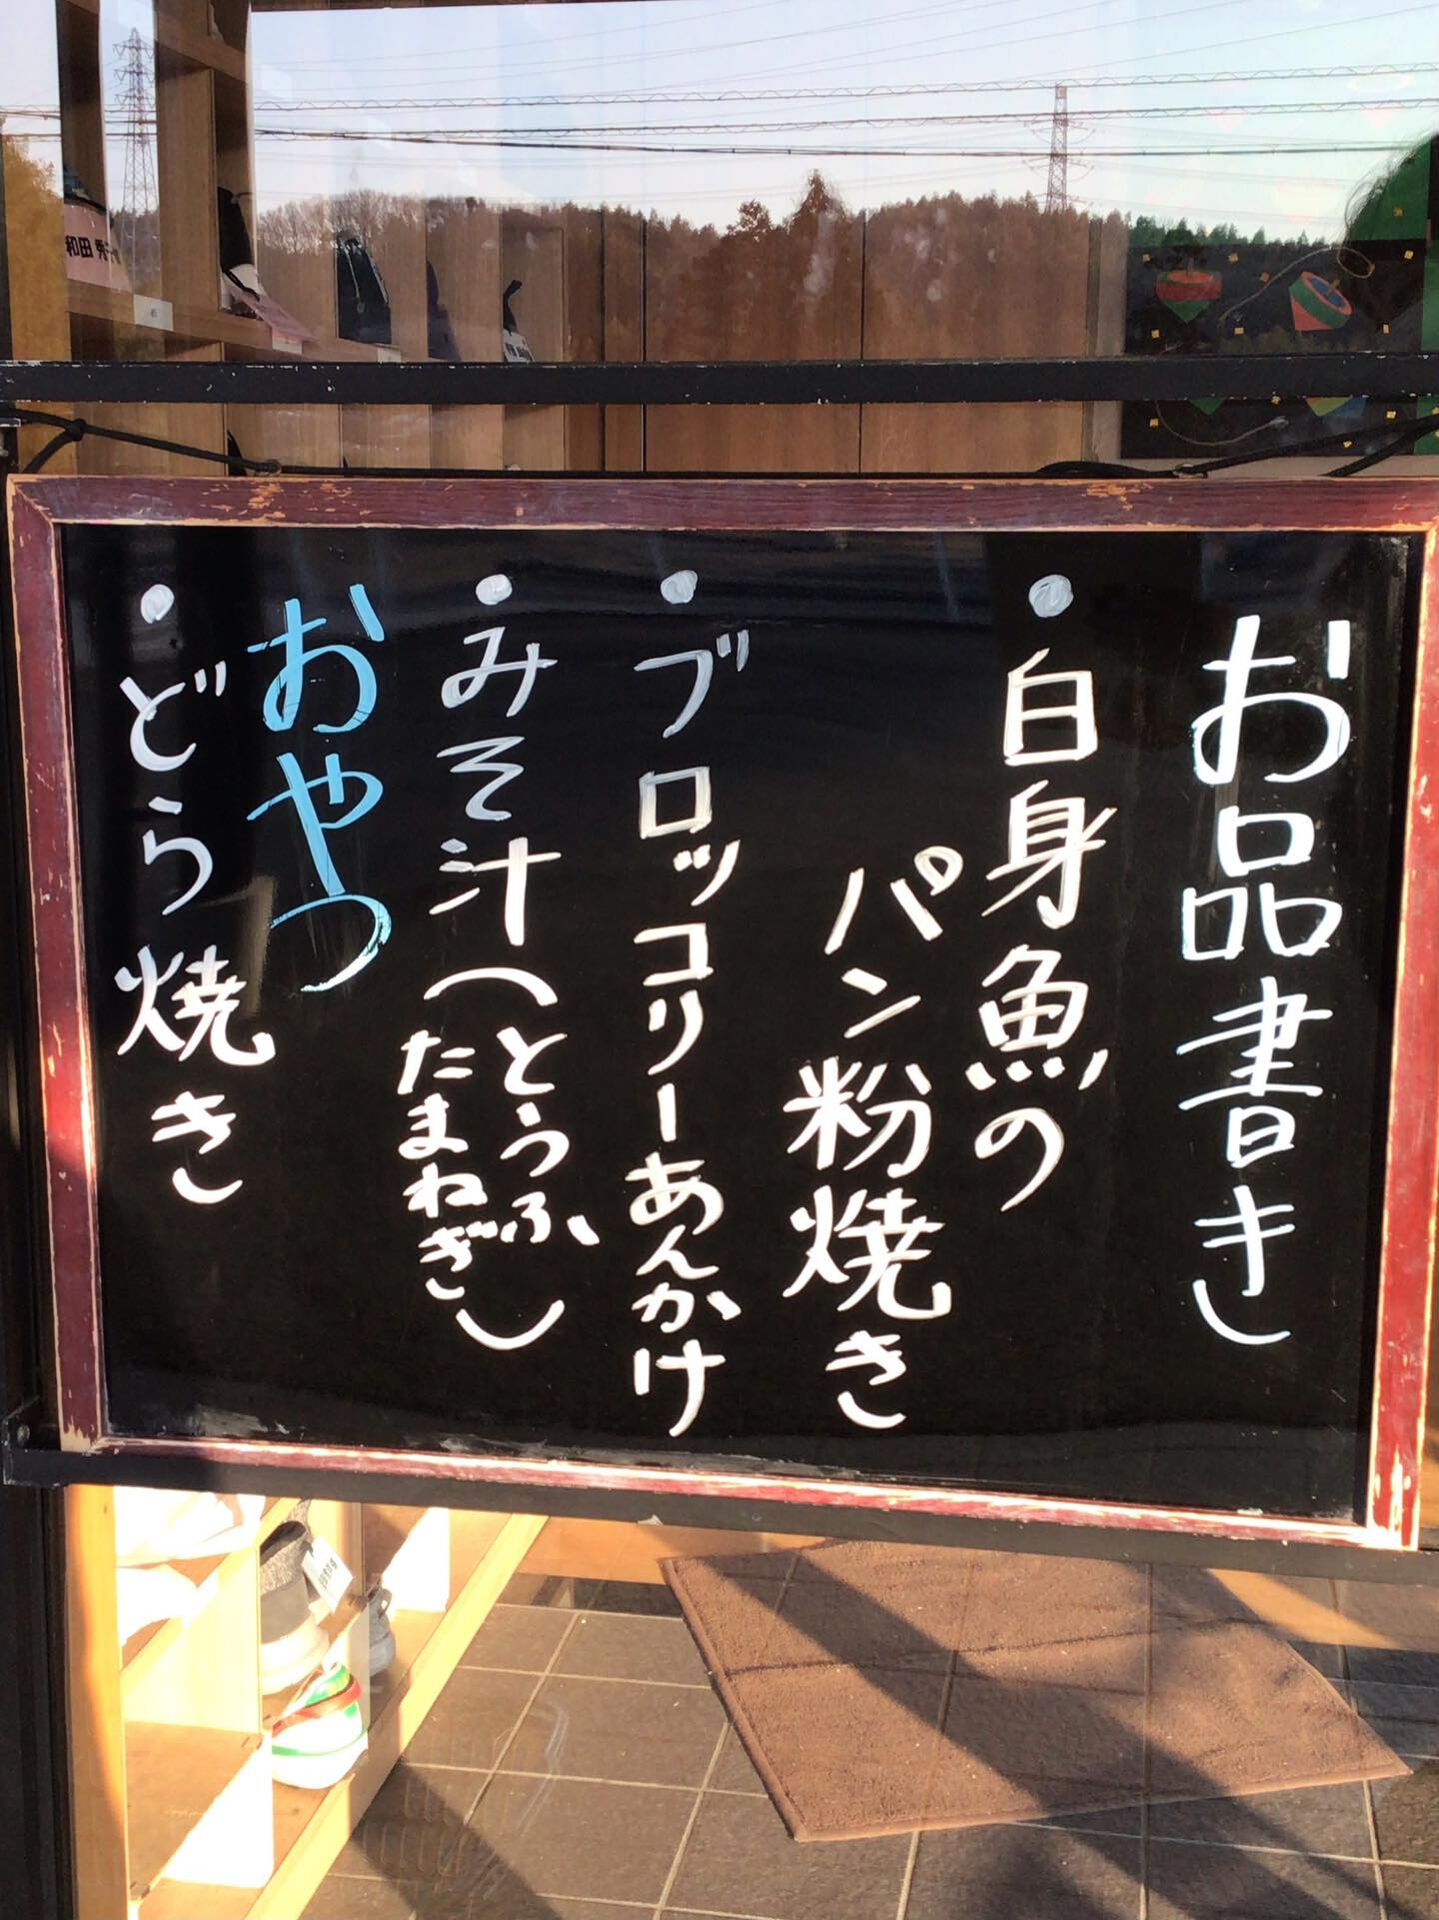 お品書き
・白身魚の
パン粉焼き
・ブロッコリーあんかけ
・みそ汁(とうふ、
たまねぎ)
おやつ
・どら焼き
和田